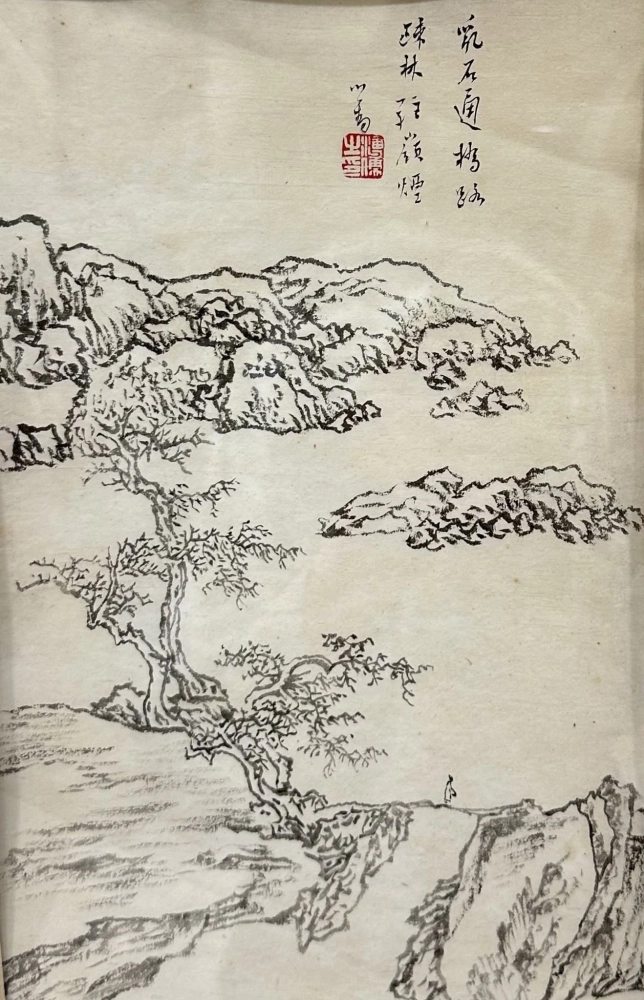 亂石通橋路
疎林嶺煙
心畬
溥儒之印